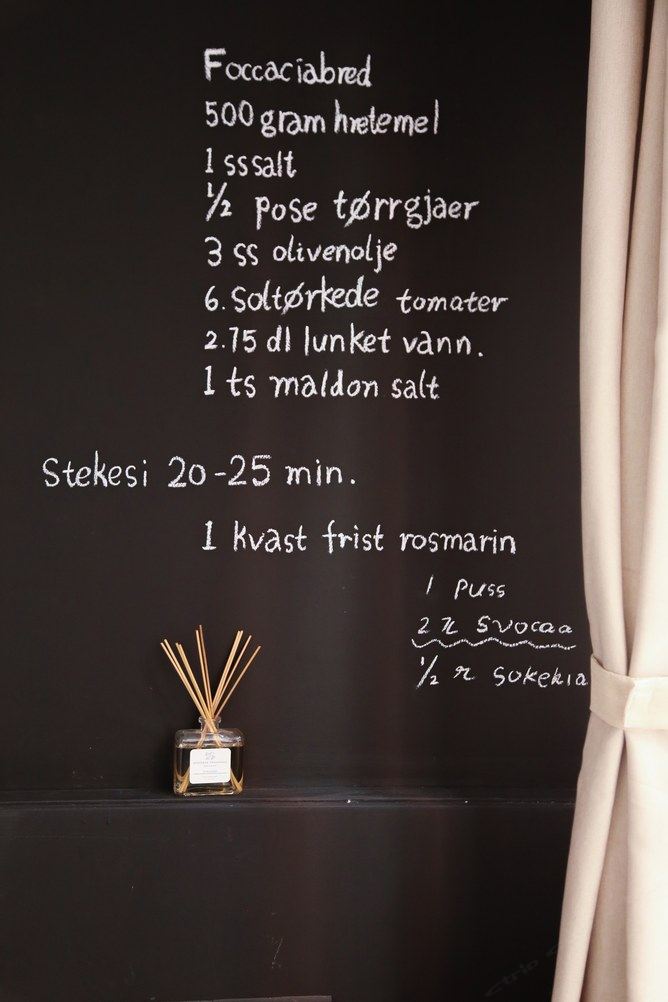 Foccaciabred
500 gram hvetemel
1 ss salt
1/2 pose tørrgjaer
3 ss olivenolje
6. Soltørkede tomater
2.75 dl lunket vann.
1 ts maldon salt
Stekesi 20-25 min.
1 kvast frist rosmarin
1 puss
2 svocaa
1/2 sukekia